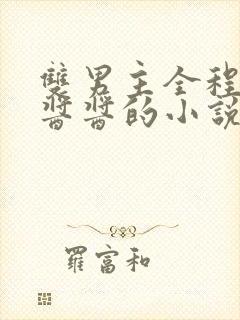 雙男主全程
醬醬的小說
羅富和